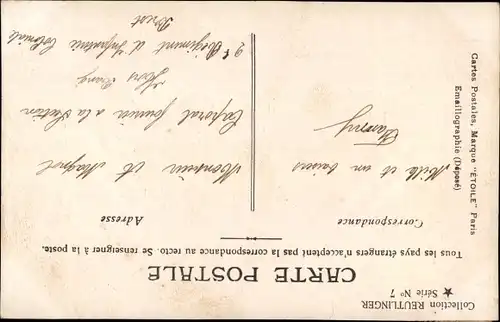 Collection REUTLINGER
★ Série No 7
CARTE POSTALE
Tous les pays étrangers n'acceptent pas la correspondance au recto. Se renseigner à la poste.
Correspondance
Mille et un baisers
Fanny
Adresse
Monsieur A. Magnol
Caporal fourrier à la Section
Hors Rang
2e Régiment d'Infanterie Coloniale
Brest
Cartes Postales, Marque "ÉTOILE" Paris
Emaillographie (Déposé)